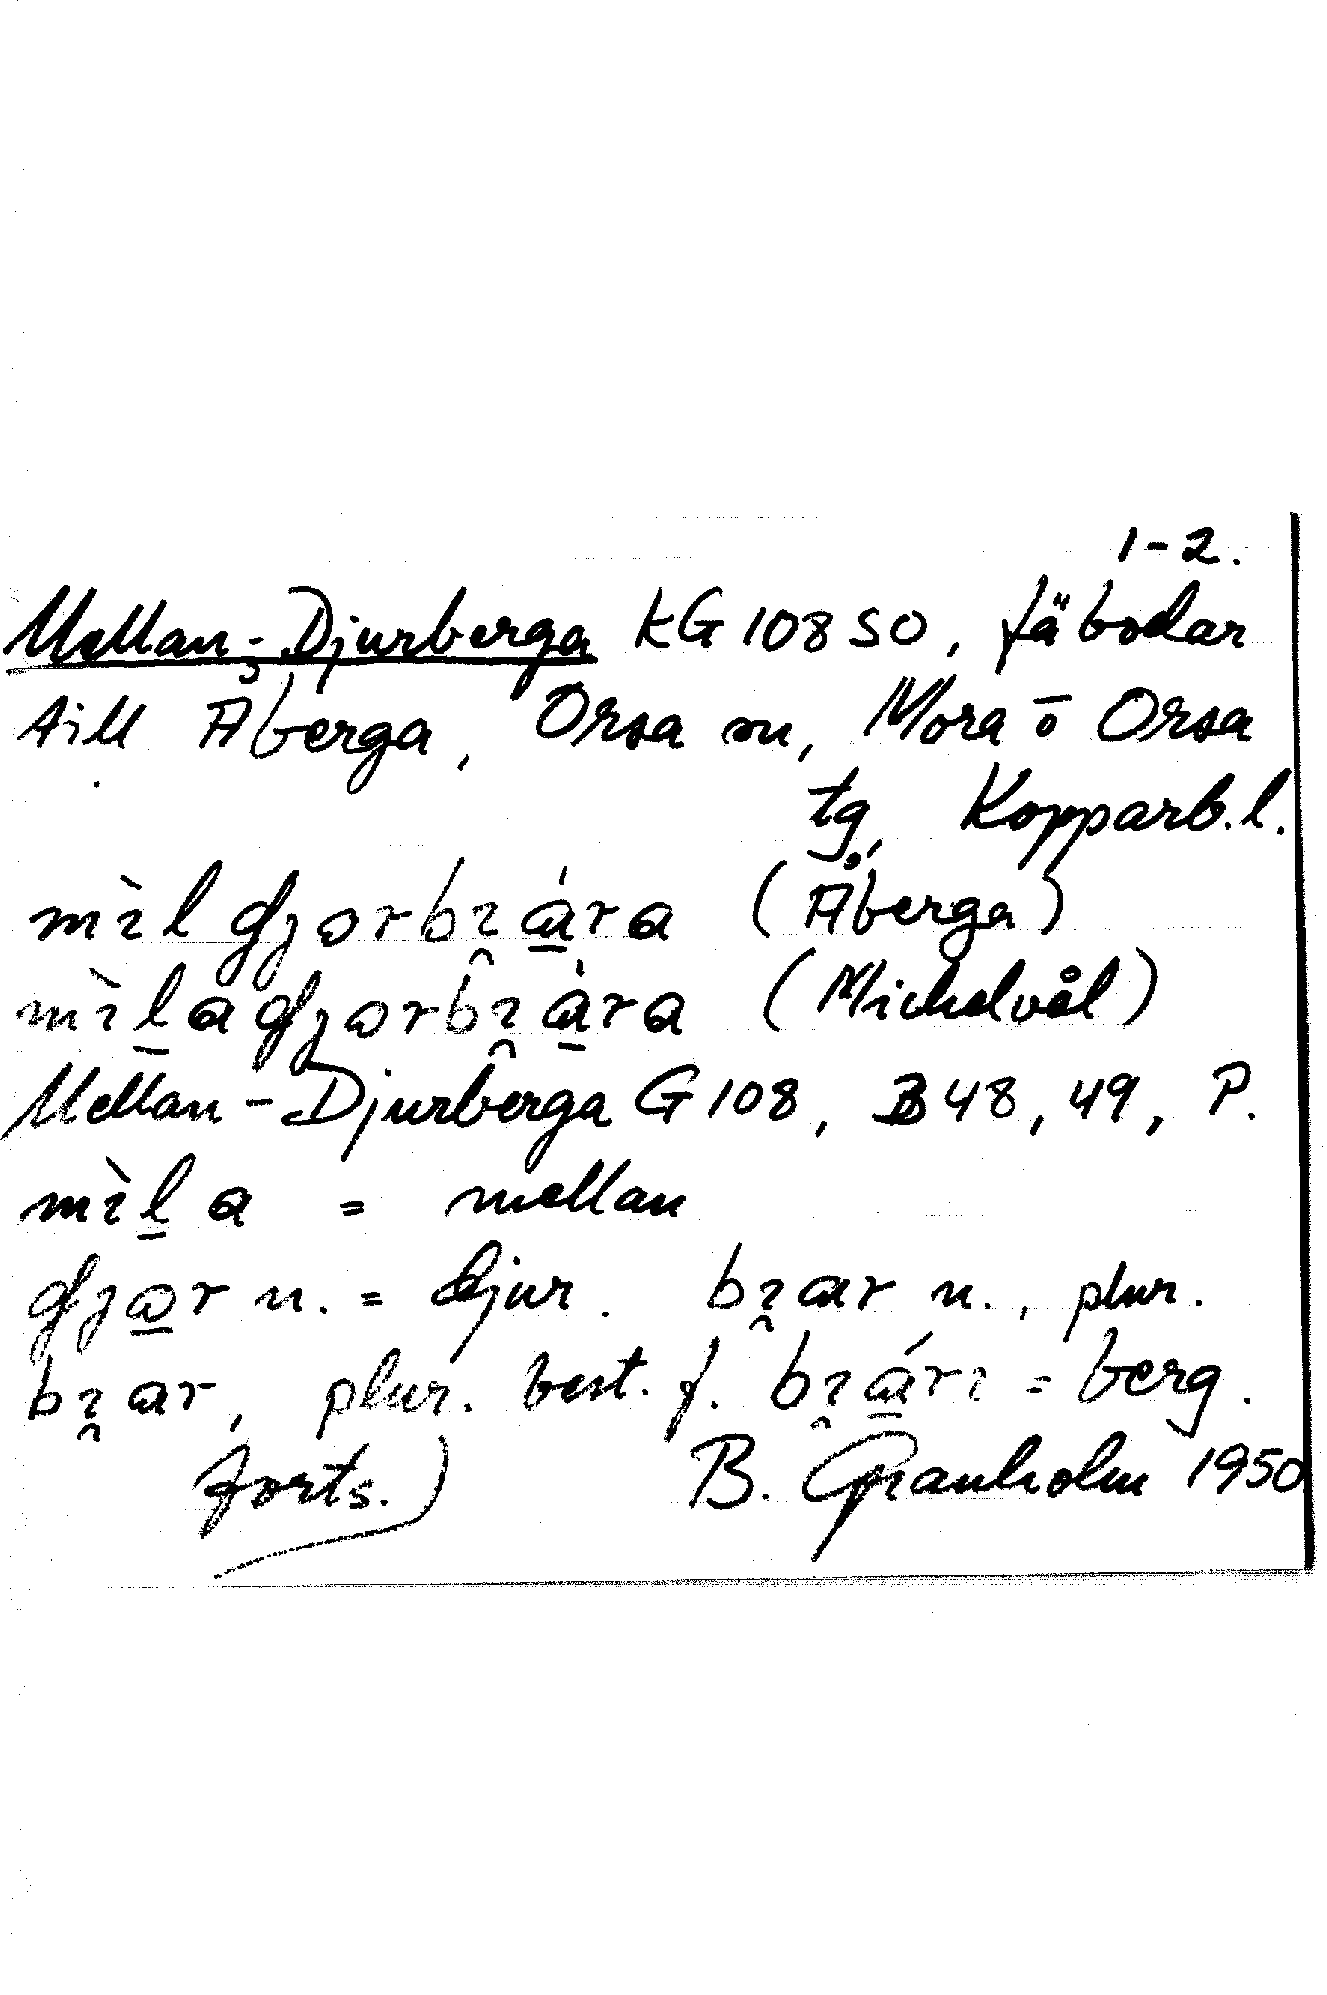 1-2.
Mellan-Djurberga KG 108 SO, fäbodar
till Åberga, Orsa sn, Mora o Orsa
tg, Kopparb.l.
mìl djorbɿ̯ára (Åberga)
mìladjorbɿ̯ára (Mickelvål)
Mellan-Djurberga G 108, B 48, 49, P.
mìla = mellan
djor n. = djur. bɿ̯ar n., plur.
bɿ̯ar, plur. best. f. bɿ̯árɿ = berg.
forts.) B. Granholm 1950